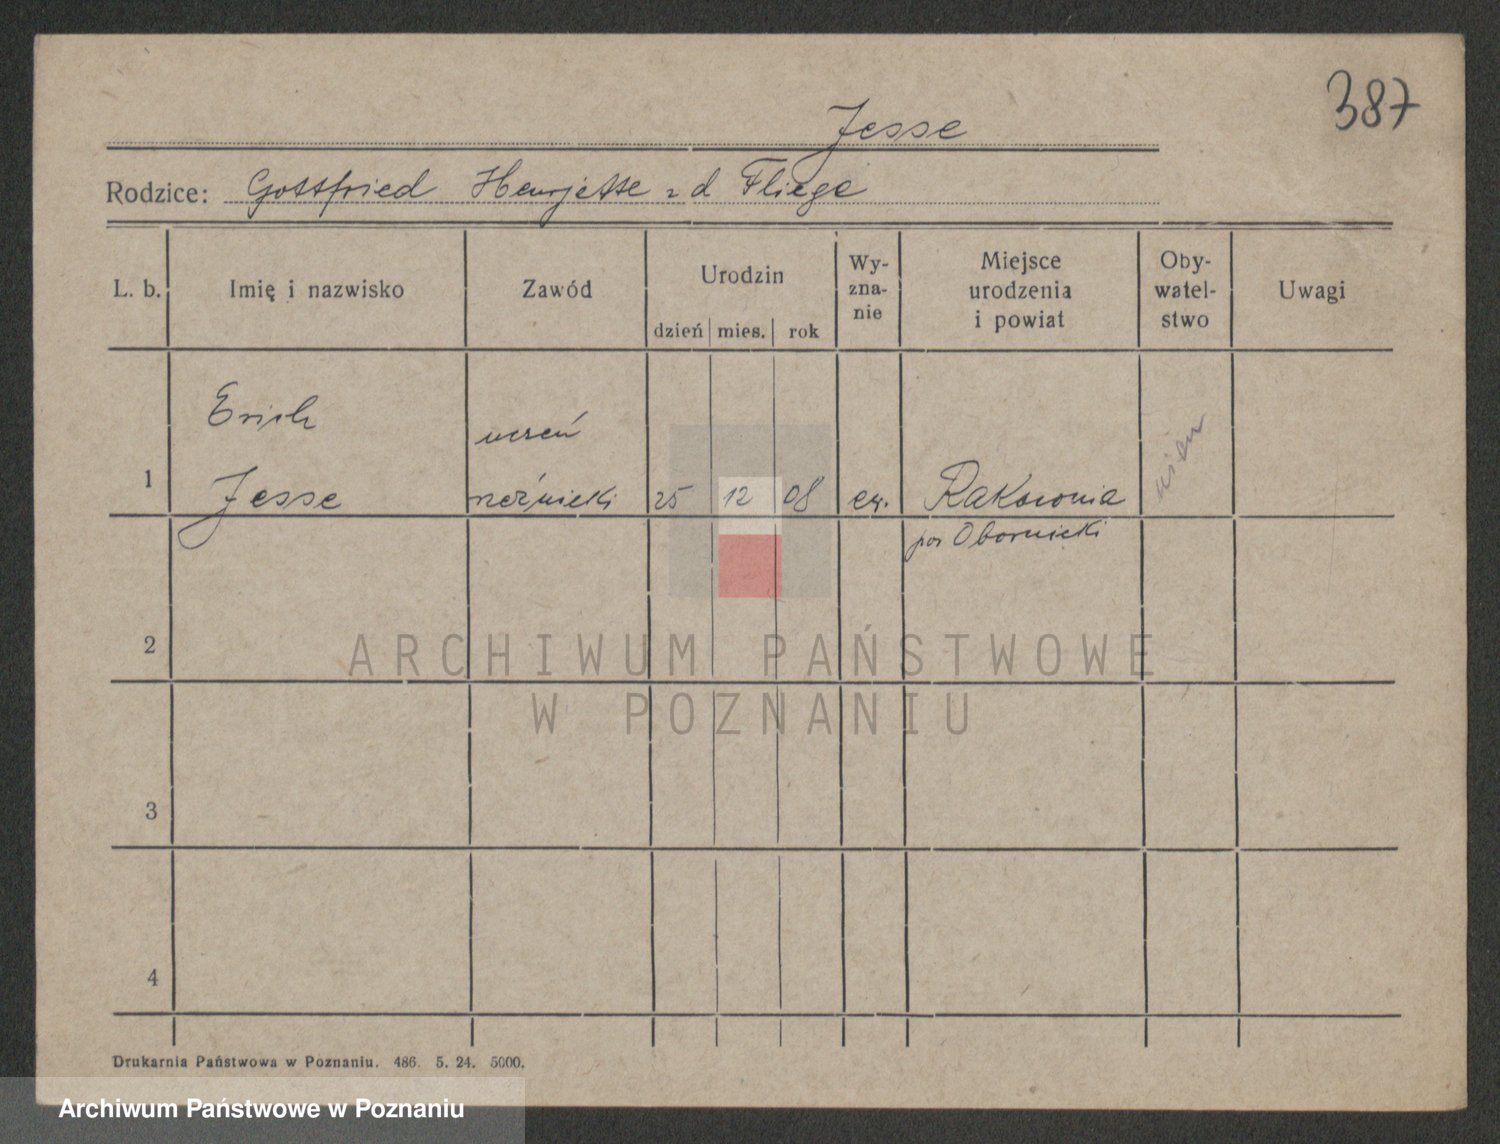 387
Jesse
Rodzice: Gottfried Henrjette z d Fliege
L. b. Imię i nazwisko Zawód Urodzin dzień mies. rok Wy-zna-nie Miejsce urodzenia i powiat Oby-watel-stwo Uwagi
Erich uczeń
1 Jesse rzeźnicki 25 12 08 ew. Rakownia
pow Obornicki
2
ARCHIWUM PAŃSTWOWE
W POZNANIU
3
4
Drukarnia Państwowa w Poznaniu. 486. 5. 24. 5000.
Archiwum Państwowe w Poznaniu